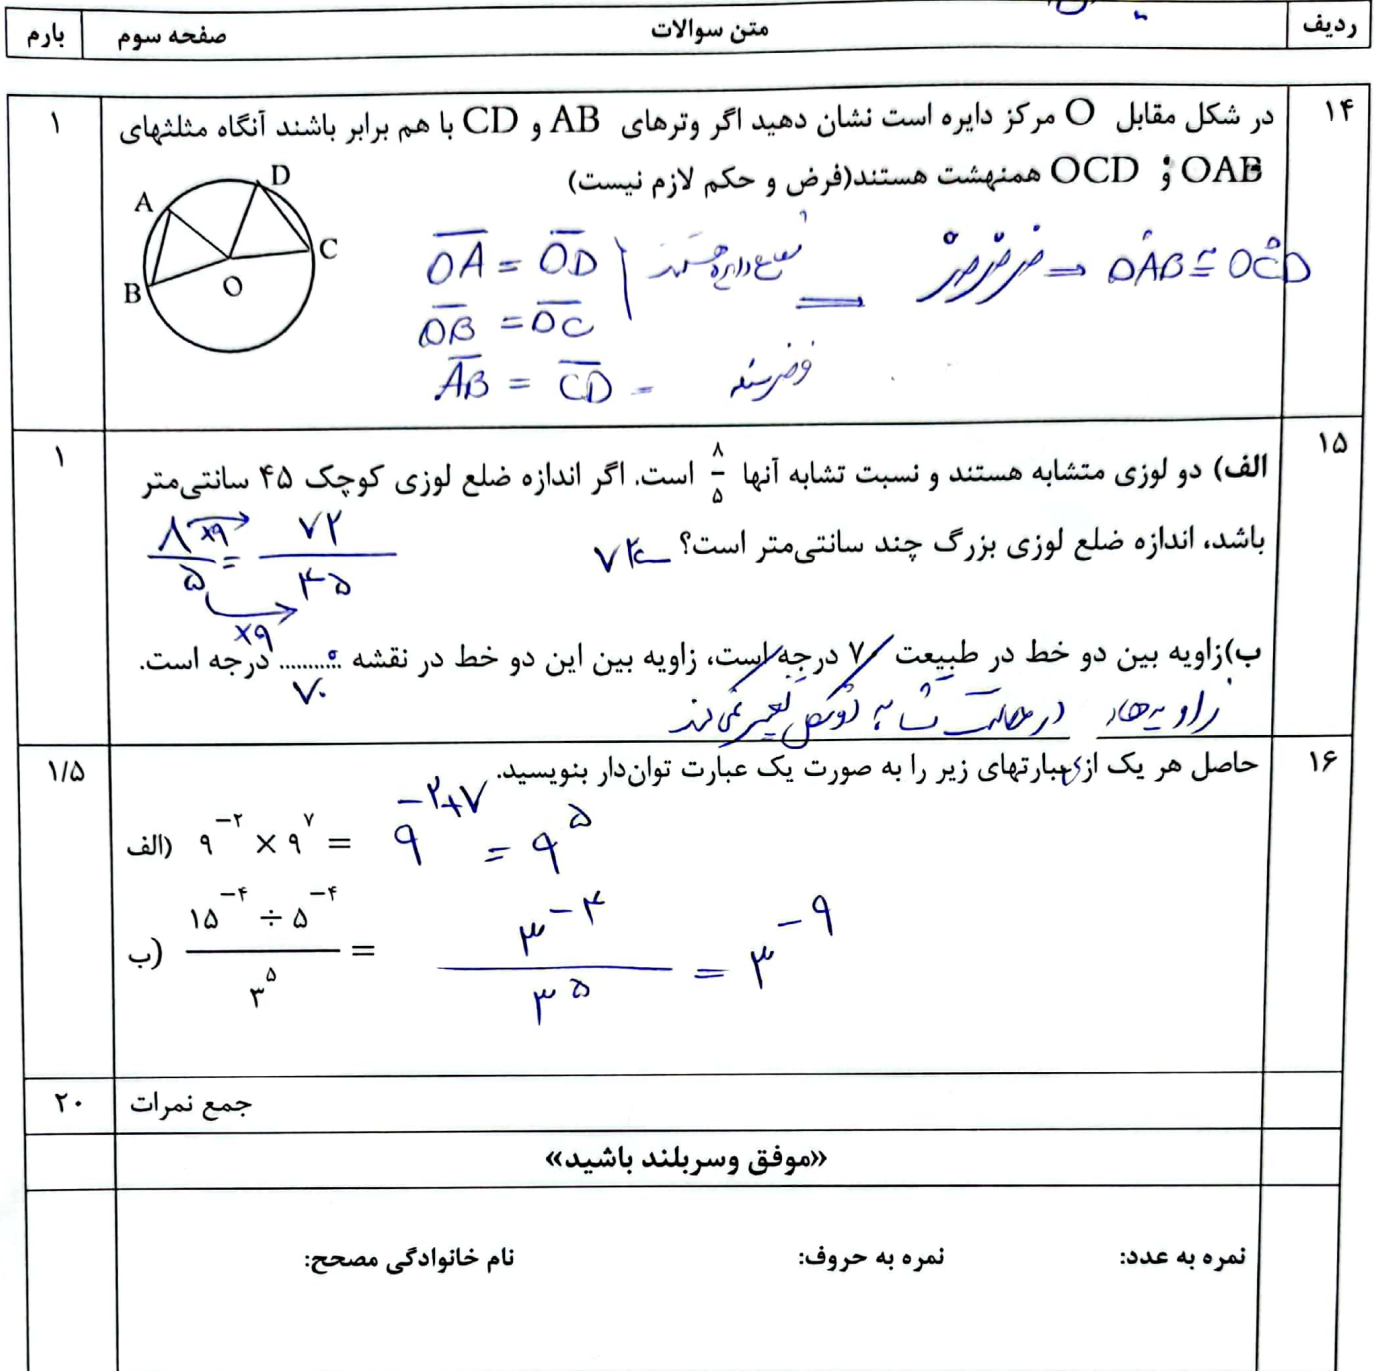 ردیف متن سوالات صفحه سوم بارم
۱۴ در شکل مقابل O مرکز دایره است نشان دهید اگر وترهای AB و CD با هم برابر باشند آنگاه مثلثهای ۱
OAB و OCD همنهشت هستند(فرض و حکم لازم نیست)
A B C D O
OA = OD شعاع دایره هستند ⇒ ض ض ض ⇒ OAB ≅ OCD
OB = OC
AB = CD = فرض مسئله
۱۵ الف) دو لوزی متشابه هستند و نسبت تشابه آنها ۸/۵ است. اگر اندازه ضلع لوزی کوچک ۴۵ سانتی‌متر ۱
باشد، اندازه ضلع لوزی بزرگ چند سانتی‌متر است؟ ۷۲
۸/۵ = ۷۲/۴۵
×۹
×۹
ب)زاویه بین دو خط در طبیعت ۷۰ درجه است، زاویه بین این دو خط در نقشه .......... درجه است.
۷۰
زاویه‌ها در حالت تشابه تغییر نمی‌کند
۱۶ حاصل هر یک از عبارتهای زیر را به صورت یک عبارت توان‌دار بنویسید. ۱/۵
الف) ۹^−۲ × ۹^۷ = ۹^−۲+۷ = ۹^۵
ب) ۱۵^−۴ ÷ ۵^−۴ / ۳^۵ = ۳^−۴ / ۳^۵ = ۳^−۹
جمع نمرات ۲۰
«موفق وسربلند باشید»
نمره به عدد: نمره به حروف: نام خانوادگی مصحح: